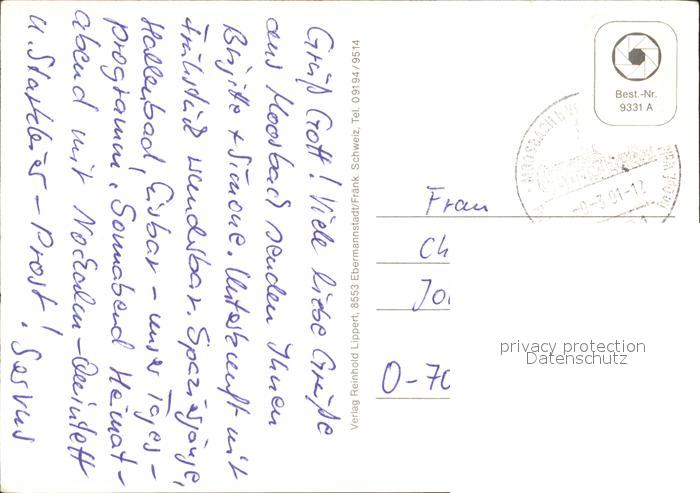 Grüß Gott! Viele liebe Grüße
aus Moosbach senden Ihnen
Birgitt + Simone. Unterkunft mit
Frühstück wunderbar. Spaziergänge,
Hallenbad, Eisbar - unser Tages-
programm. Sonnabend Heimat-
abend mit Nordgau-Quintett
u. Starkbier - Prost! Servus
Verlag Reinhold Lippert, 8553 Ebermannstadt/Fränk. Schweiz, Tel. 09194/9514
Best.-Nr.
9331 A
MOOSBACH B
-3.91-12
Frau
Ch
Jo
O-70
privacy protection
Datenschutz